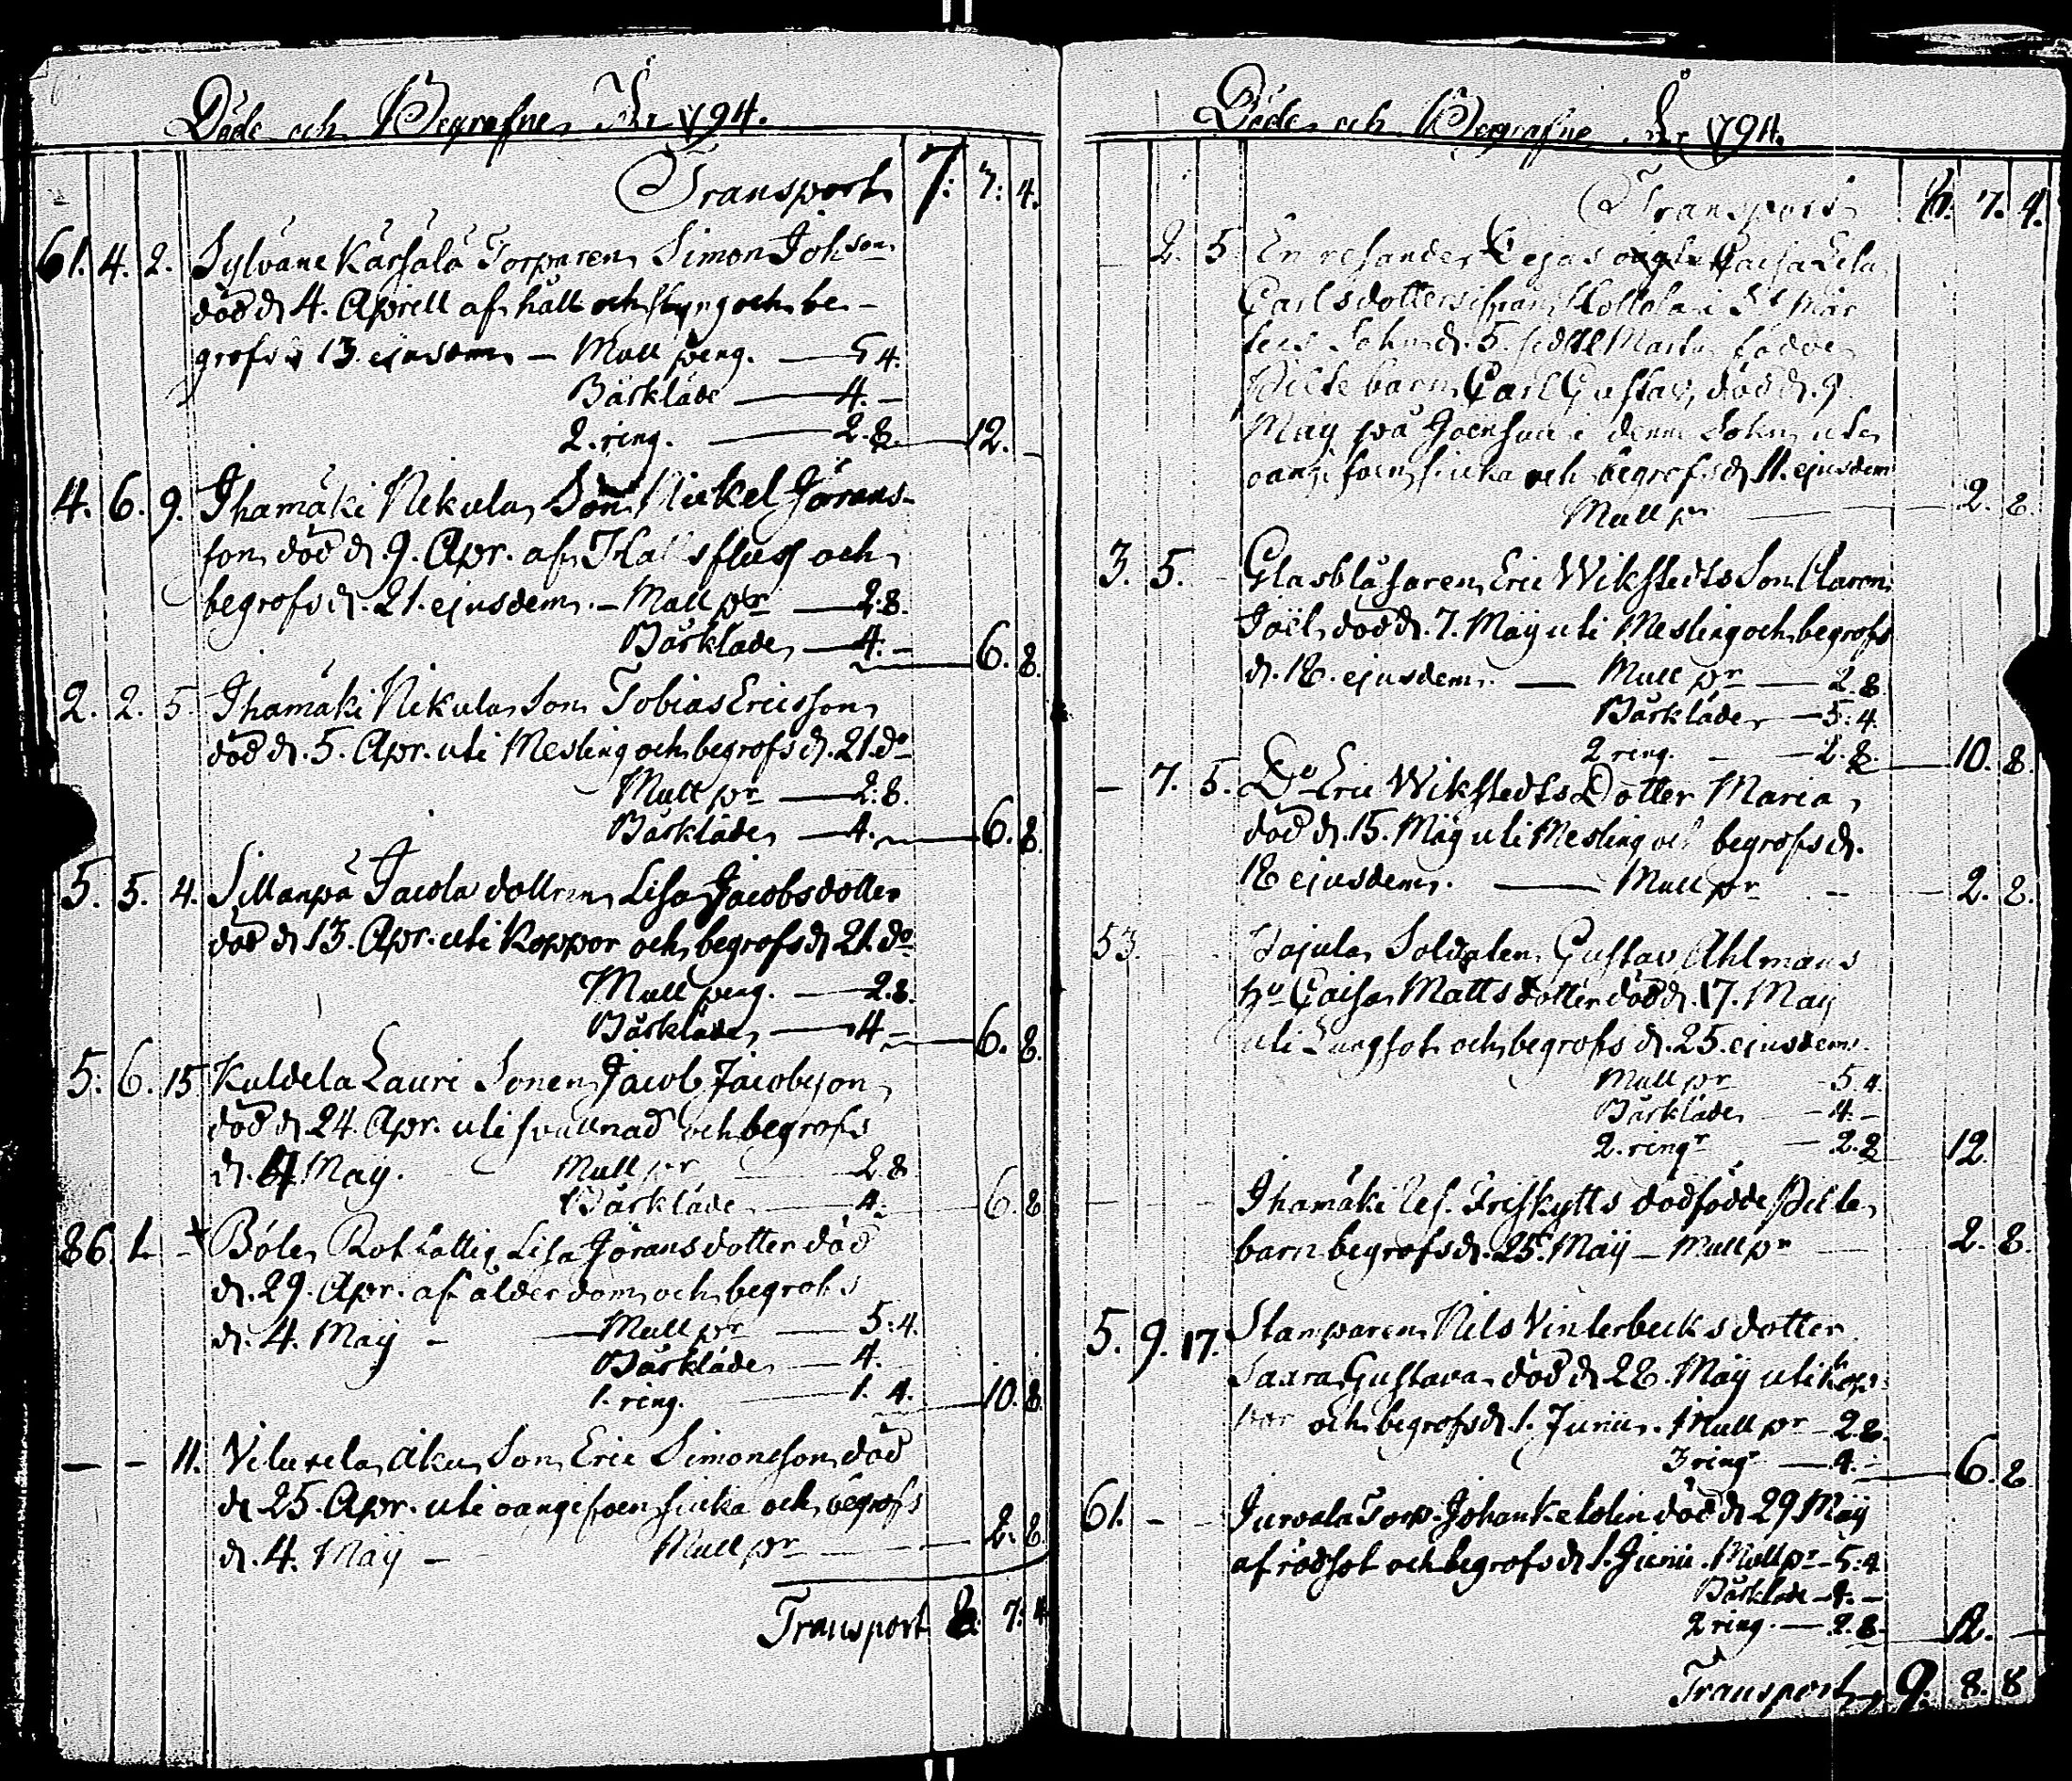 Döde och Begrafne År 1794.
Transport 7: 7: 4.
61. 4. 2. Sylväne Kärsälä Torparen Simon Johsson
död d. 4. Aprill af håll och styng och be-
grofs d 13. ejusdem - Mull peng. - 5 4.
Bårkläde - 4. -
2. ring. - 2. 8. - 12. -
4. 6. 9. Ihamäki Nikula Son Mickel Görans-
son död d. 9. Apr. af Halsfluss och
begrofs d. 21. ejusdem. - Mull pr - 2. 8.
Bårkläde - 4. - 6. 8.
2. 2. 5. Ihamäki Nikula Son Tobias Ericsson
död d. 5. Apr. uti Mesling och begrofs d. 21. do
Mull pr - 2. 8.
Bårkläde - 4. - 6. 8.
5. 5. 4. Sillanpä Jacola dottren Lisa Jacobsdotter
död d 13. Apr. uti Koppor och begrofs d 21. do
Mull peng. - 2. 8.
Bårkläde - 4 - 6. 8.
5. 6. 15 Kuldela Lauri Sonen Jacob Jacobsson
död d 24. Apr. uti svullnad och begrofs
d. 4 May. Mull pr 2 8
Bårkläde - 4. 6. 8
86 1. - Böle Rot hattig Lisa Göransdotter död
d. 29. Apr. af ålderdom och begrofs
d. 4. Maÿ - Mull pr - 5. 4.
Bårkläde - 4.
1. ring. - 1. 4. - 10. 8.
- - 11. Viluxela Aku Son Eric Simonsson död
d 25. Apr. uti oangifven siuka och begrofs
d. 4. Maÿ - Mull pr - 2. 8.
Transport 8. 7: 4
Döde och Begrafne År 1794.
Transport 8. 7. 4.
- 2. 5. En resandes Caisa
Carlsdotters ifrån Hollola i St Mår
tens Sokn d. 5. födde
Pilte barn Carl Gustav, död d. 9.
May på i denne Sokn uti
oangifven siuka och begrofs d. 11. ejusdem
Mull pr - 2. 8.
3. 5. - Glasblåsaren Eric Wikstedts Son Aaron
Joël död d. 7. Maÿ uti Mesling och begrofs
d. 18. ejusdem. - Mull pr - 2. 8
Bårkläde - 5. 4.
2 ring. - - 2. 8. - 10. 8.
- 7. 5. Do Eric Wikstedts Dotter Maria
död d. 15. Maÿ uti Mesling och begrofs d.
18 ejusdem. - Mull pr - 2. 8.
53. Sojula Soldaten Gustav Ahlmans
hu Caisa Matts dotter död d. 17. Maÿ
uti Lungsot och begrofs d. 25. ejusdem.
Mull pr - 5 4.
Bårkläde - 4. -
2. ringr - 2. 8 12
- - Ihamäki Friskytts dödfödde Pilte
barn begrofs d. 25. Maÿ - Mull pr 2. 8.
5. 9. 17. Stamparen Nils Vinterbecks dotter
Saara Gustava död d 28. Maÿ uti Kop-
por och begrofs d 1. Junii. Mull pr - 2. 8.
3 ringr - 4. - 6. 8
61. - - Jurvala Torp. Johan Kelolin död d 29 Maÿ
af rödsot och begrofs d 1. Junii. Mull pr - 5: 4
Bårkläde - 4. -
2 ring. - 2. 8. - 12. -
Transport 9. 8. 8